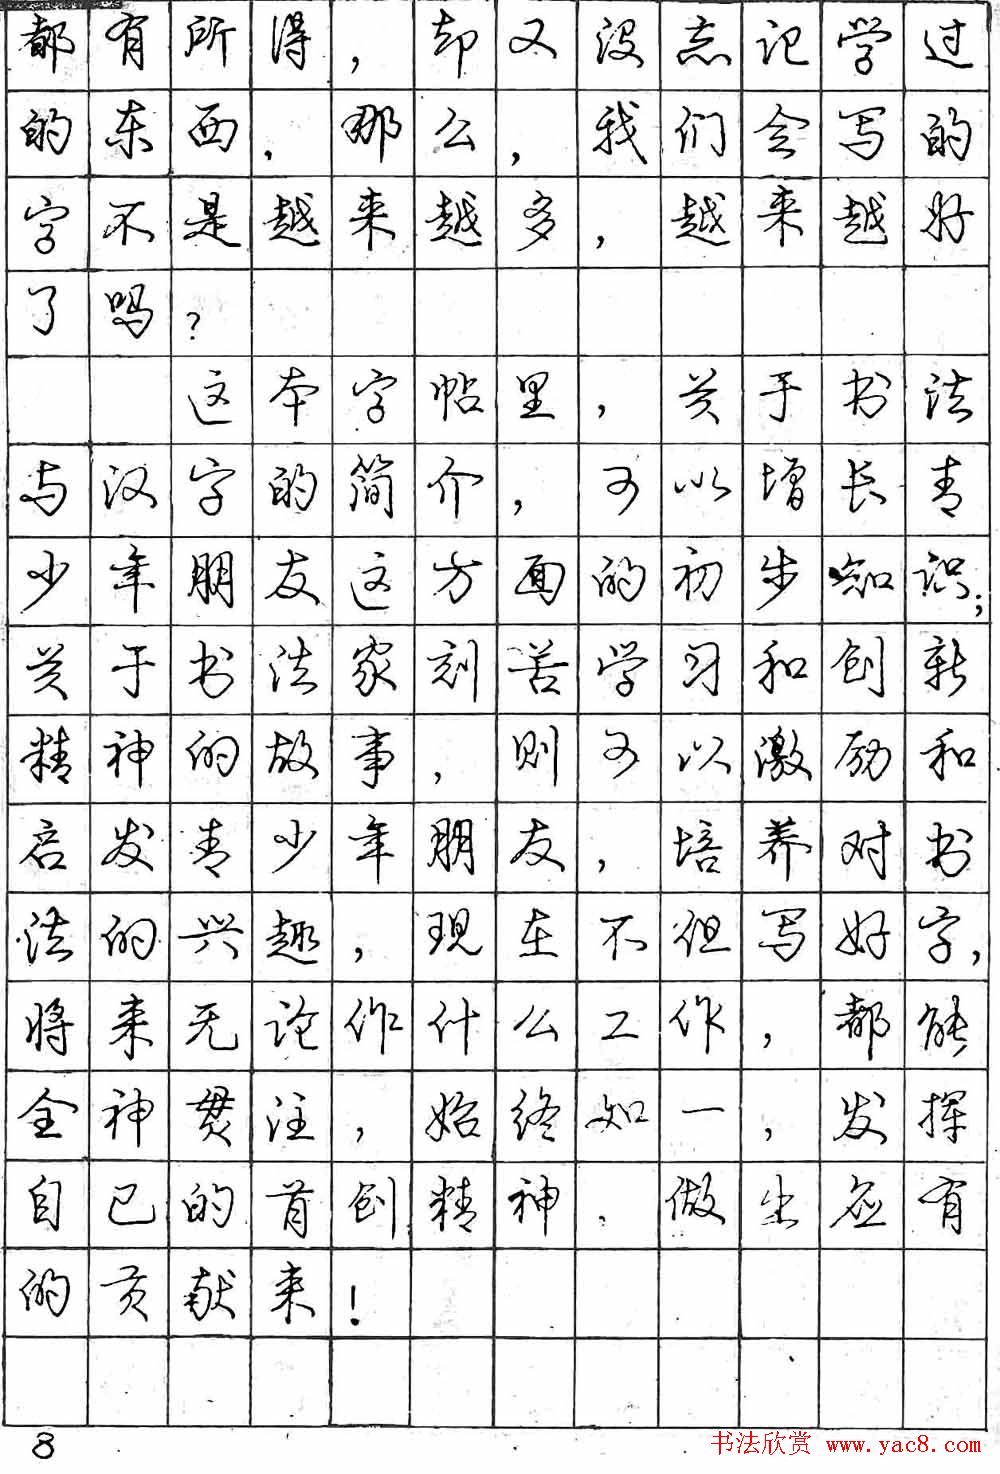 都有所得，却又没忘记学过
的东西，那么，我们会写的
字不是越来越多，越来越好
了吗？
这本字帖里，关于书法
与汉字的简介，可以增长青
少年朋友这方面的初步知识；
关于书法家刻苦学习和创新
精神的故事，则可以激励和
启发青少年朋友，培养对书
法的兴趣，现在不但写好字，
将来无论作什么工作，都能
全神贯注，始终如一，发挥
自己的首创精神，做出应有
的贡献来！
8
书法欣赏 www.yac8.com